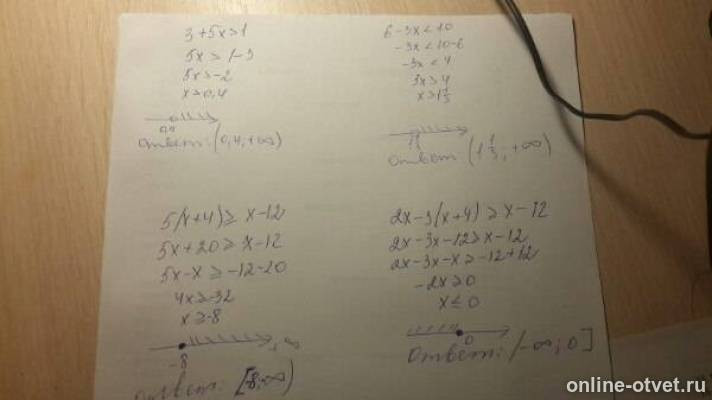 3+5x>1
5x>1-3
5x>-2
x>0,4
0,4
Ответ: (0,4;+∞)
6-3x<10
-3x<10-6
-3x<4
3x>4
x>1 1/3
Ответ (1 1/3; +∞)
5(x+4)⩾x-12
5x+20⩾x-12
5x-x⩾-12-20
4x⩾-32
x⩾-8
-8 +∞
Ответ: [-8;∞)
2x-3(x+4)⩾x-12
2x-3x-12⩾x-12
2x-3x-x⩾-12+12
-2x⩾0
x⩽0
0
Ответ: (-∞;0]
online-otvet.ru